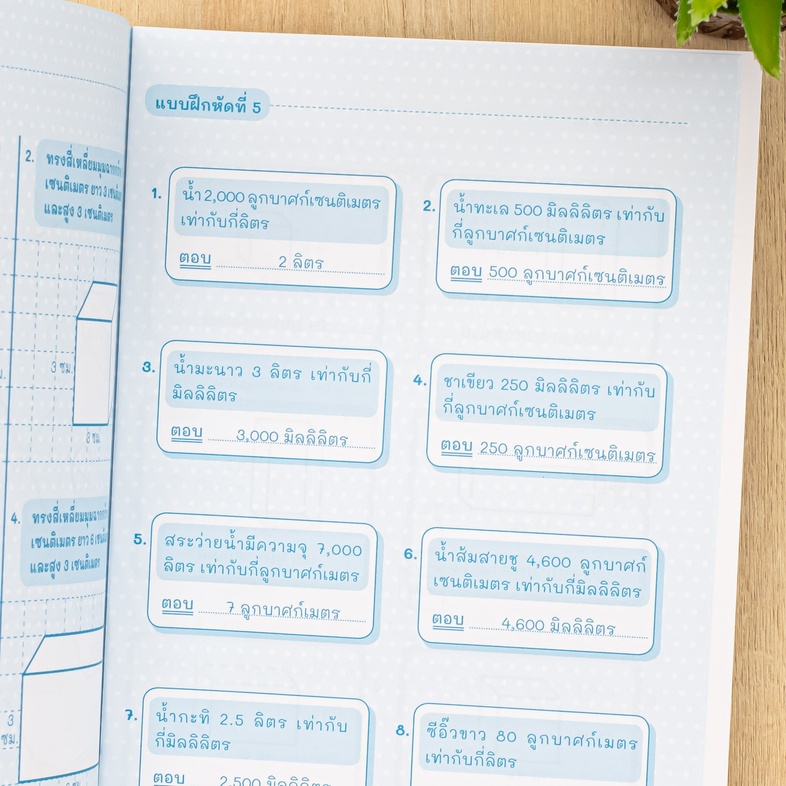 2. ทรงสี่เหลี่ยมมุมฉากกว้าง
เซนติเมตร ยาว 3 เซนติเมตร
และสูง 3 เซนติเมตร
3 ซม.
3 ซม.
4. ทรงสี่เหลี่ยมมุมฉากกว้าง
เซนติเมตร ยาว 6 เซนติเมตร
และสูง 3 เซนติเมตร
3
ซม.
แบบฝึกหัดที่ 5
1. น้ำ 2,000 ลูกบาศก์เซนติเมตร
เท่ากับกี่ลิตร
ตอบ 2 ลิตร
2. น้ำทะเล 500 มิลลิลิตร เท่ากับ
กี่ลูกบาศก์เซนติเมตร
ตอบ 500 ลูกบาศก์เซนติเมตร
3. น้ำมะนาว 3 ลิตร เท่ากับกี่
มิลลิลิตร
ตอบ 3,000 มิลลิลิตร
4. ชาเขียว 250 มิลลิลิตร เท่ากับ
กี่ลูกบาศก์เซนติเมตร
ตอบ 250 ลูกบาศก์เซนติเมตร
5. สระว่ายน้ำมีความจุ 7,000
ลิตร เท่ากับกี่ลูกบาศก์เมตร
ตอบ 7 ลูกบาศก์เมตร
6. น้ำส้มสายชู 4,600 ลูกบาศก์
เซนติเมตร เท่ากับกี่มิลลิลิตร
ตอบ 4,600 มิลลิลิตร
7. น้ำกะทิ 2.5 ลิตร เท่ากับ
กี่มิลลิลิตร
ตอบ 2,500 มิลลิลิตร
8. ซีอิ๊วขาว 80 ลูกบาศก์เมตร
เท่ากับกี่ลิตร